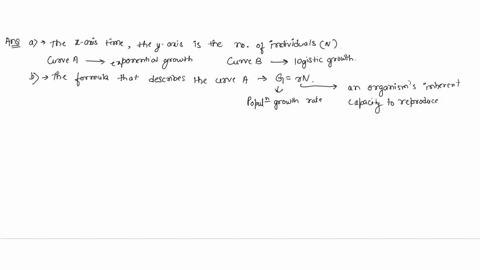 Ans a) → The x-axis time, the y-axis is the no. of individuals (N)
Curve A → exponential growth    Curve B → logistic growth.
b) → The formula that describes the curve A → G = rN. → an organism's inherent
Populⁿ growth rate    capacity to reproduce